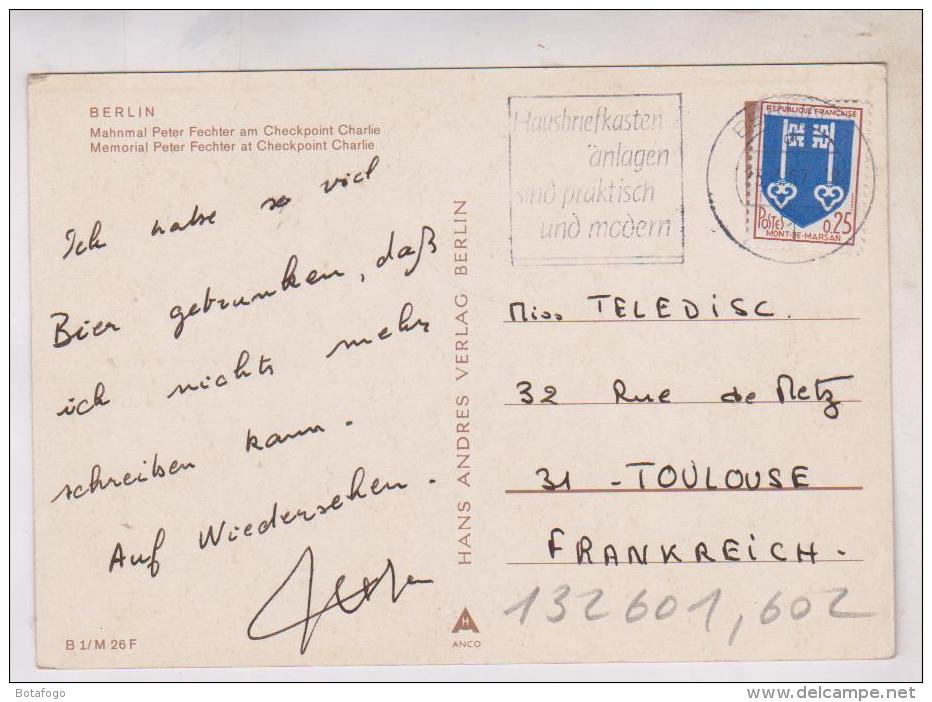 BERLIN
Mahnmal Peter Fechter am Checkpoint Charlie
Memorial Peter Fechter at Checkpoint Charlie
Ich habe so viel
Bier getrunken, daß
ich nichts mehr
schreiben kann.
Auf Wiedersehen.
B 1/M 26 F
HANS ANDRES VERLAG BERLIN
H
ANCO
Hausbriefkasten
änlagen
sind praktisch
und modern
REPUBLIQUE FRANÇAISE
POSTES 0,25
MONT-DE-MARSAN
Miss TELEDISC.
32 Rue de Metz
31 - TOULOUSE
FRANKREICH.
132601,602
Botafogo
www.delcampe.net